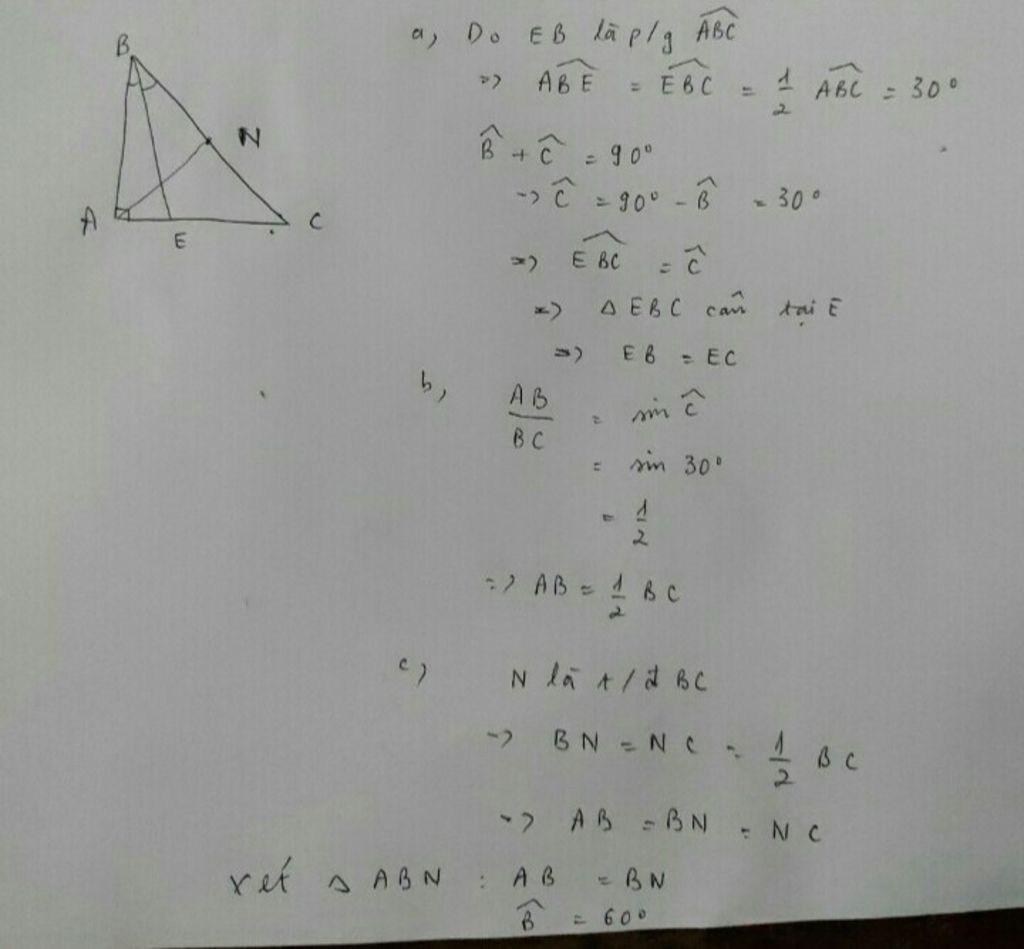 B
N
A
E
C
a, Do EB là p/g \widehat{ABC}
=> \widehat{ABE} = \widehat{EBC} = \frac{1}{2} \widehat{ABC} = 30°
\widehat{B} + \widehat{C} = 90°
-> \widehat{C} = 90° - \widehat{B} = 30°
=> \widehat{EBC} = \widehat{C}
=> Δ EBC cân tại E
=> EB = EC
b, \frac{AB}{BC} = sin \widehat{C}
= sin 30°
= \frac{1}{2}
=> AB = \frac{1}{2} BC
c) N là t/đ BC
-> BN = NC = \frac{1}{2} BC
-> AB = BN = NC
xét Δ ABN : AB = BN
\widehat{B} = 60°